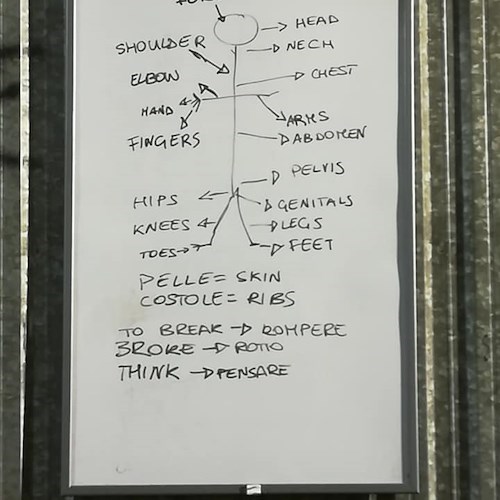 HEAD
SHOULDER
NECH
ELBOW
CHEST
HAND
ARMS
FINGERS
ABDOMEN
PELVIS
HIPS
GENITALS
KNEES
LEGS
TOES
FEET
PELLE = SKIN
COSTOLE = RIBS
TO BREAK → ROMPERE
BROKE → ROTTO
THINK → PENSARE